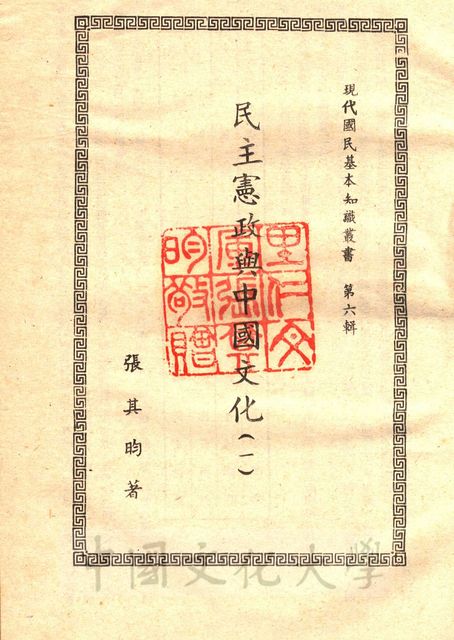 現代國民基本知識叢書 第六輯
民主憲政與中國文化(一)
里仁文
庫張其
昀敬贈
張其昀著
中國文化大學